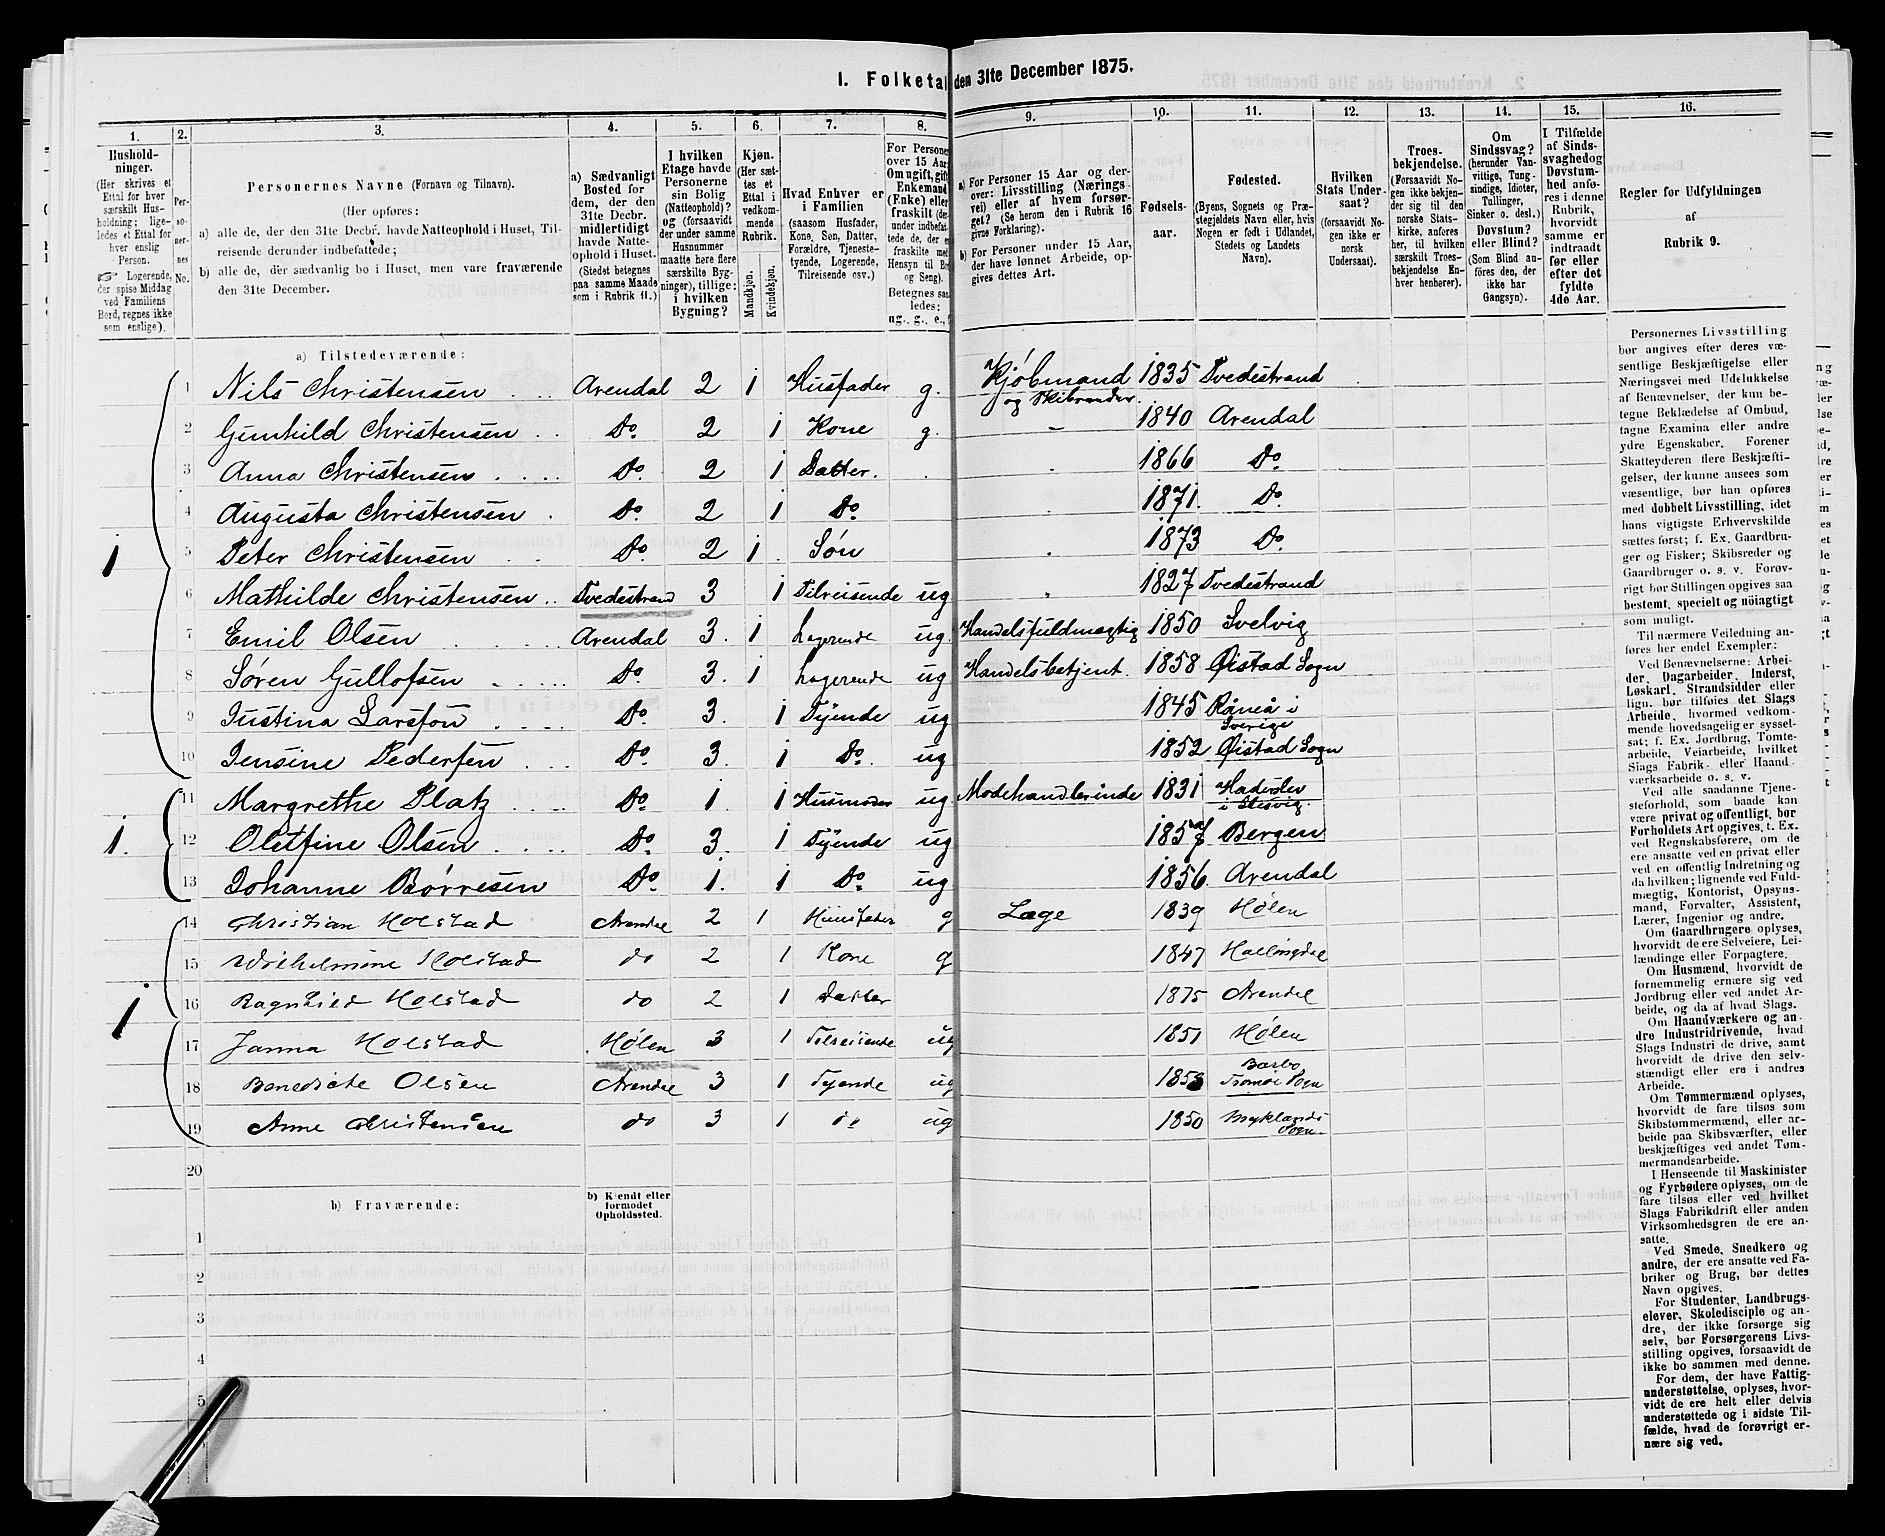 1. Folketal den 31te December 1875.
1. 2. 3. 4. 5. 6. 7. 8. 9. 10. 11. 12. 13. 14. 15. 16.
Hushold-
ninger.
(Her skrives et
Ettal for hver
særskilt Hus-
holdning; lige-
ledes et Ettal for
hver enslig
Person.
☞ Logerende,
der spise Middag
ved Familiens
Bord, regnes ikke
som enslige).
Per-
so-
ner-
nes
No.
Personernes Navne (Fornavn og Tilnavn).
(Her opføres:
a) alle de, der den 31te Decbr. havde Natteophold i Huset, Til-
reisende derunder indbefattede;
b) alle de, der sædvanlig bo i Huset, men vare fraværende
den 31te December.
a) Sædvanligt
Bosted for
dem, der den
31te Decbr.
midlertidigt
havde Natte-
ophold i Huset.
(Stedet betegnes
paa samme Maade
som i Rubrik 11.)
I hvilken
Etage havde
Personerne
sin Bolig
(Natteophold)?
(forsaavidt
der under samme
Husnummer
maatte høre flere
særskilte Byg-
ninger), tillige:
i hvilken
Bygning?
Kjøn.
(Her sæt-
tes et
Ettal i
vedkom-
mende
Rubrik.
Mandkjøn.
Kvindekjøn.
Hvad Enhver er
i Familien
(saasom Husfader,
Kone, Søn, Datter,
Forældre, Tjeneste-
tyende, Logerende,
Tilreisende osv.)
For Personer
over 15 Aar:
Om ugift, gift,
Enkemand
(Enke) eller
fraskilt
Betegnes saa-
ledes:
ug., g., e.,
a) For Personer 15 Aar og der-
over: Livsstilling (Nærings-
vei) eller af hvem forsør-
get? (Se herom den i Rubrik 16
givne Forklaring).
b) For Personer under 15 Aar,
der have lønnet Arbeide, op-
gives dettes Art.
Fødsels-
aar.
Fødested.
(Byens, Sognets og Præ-
stegjeldets Navn eller, hvis
Nogen er født i Udlandet,
Stedets og Landets
Navn).
Hvilken
Stats Under-
saat?
(forsaavidt No-
gen ikke er
norsk
Undersaat).
Troes-
bekjendelse.
(Forsaavidt No-
gen ikke bekjen-
der sig til den
norske Stats-
kirke, anføres
her, til hvilken
særskilt Troes-
bekjendelse En-
hver henhører).
Om
Sindssvag?
(herunder Van-
vittige, Tung-
sindige, Idioter,
Tullinger,
Sinker o. desl.)
Døvstum?
eller Blind?
(Som Blind an-
føres den, der
ikke har
Gangsyn).
I Tilfælde
af Sinds-
svaghedog
Døvstum-
hed anfø-
res i denne
Rubrik,
hvorvidt
samme er
indtraadt
før eller
efter det
fyldte
4de Aar.
Regler for Udfyldningen
af
Rubrik 9.
a) Tilstedeværende:
1 Nils Christensen Arendal 2 1 Husfader g. Kjøbmand og Skibsreder. 1835 Tvedestrand
2 Gunhild Christensen Do. 2 1 Kone g. 1840 Arendal
3 Anna Christensen Do. 2 1 Datter. 1866 Do.
4 Augusta Christensen Do. 2 1 Do. 1871. Do.
1 5 Peter Christensen Do. 2 1 Søn 1873 Do.
6 Mathilde Christensen Tvedestrand 3 1 Tilreisende ug 1827 Tvedestrand
7 Emil Olsen Arendal 3. 1 Logerende ug. Handelsfuldmægtig 1850 Svelvig
8 Søren Gullofsen Do. 3. 1 Logerende ug Handelsbetjent. 1858 Øistad Sogn
9 Justina Larsson Do. 3. 1 Tyende ug 1845 Råneå i Sverige
10 Jensine Pedersen Do. 3. 1 Do. ug 1852 Øistad Sogn
11 Margrethe Platz Do. 1. 1 Husmoder ug. Modehandlerinde 1831 Haderslev i Slesvig.
1. 12 Oletfine Olsen Do. 3. 1 Tyende ug 1857 Bergen
13 Johanne Børresen Do. 1. 1 Do. ug 1856. Arendal
14 Christian Holstad Arendal 2 1 Huusfader g Læge 1839 Hølen
15 Wilhelmine Holstad do 2 1 Kone g 1847 Hallingdal
1 16 Ragnhild Holstad do 2 1 Datter 1875 Arendal
17 Janna Holstad Hølen 3 1 Tilreisende ug 1851 Hølen
18 Benedicte Olsen Arendal 3 1 Tyende ug Barbo Tromøe Sogn
19 Anne Christensen do 3 1 do ug 1850 Myklands Sogn.
20
b) Fraværende:
b) Kjendt eller
formodet
Opholdssted.
1
2
3
4
5
Personernes Livsstilling
bør angives efter deres væ-
sentlige Beskjæftigelse eller
Næringsvei med Udelukkelse
af Benævnelser, der kun be-
tegne Beklædelse af Ombud,
tagne Examina eller andre
ydre Egenskaber. Forener
Skatteyderen flere Beskjæfti-
gelser, der kunne ansees som
væsentlige, bør han opføres
med dobbelt Livsstilling, idet
hans vigtigste Erhvervskilde
sættes først; f. Ex. Gaardbru-
ger og Fisker; Skibsreder og
Gaardbruger o. s. v. Forøv-
rigt bør Stillingen opgives saa
bestemt, specielt og nøiagtigt
som muligt.
Til nærmere Veiledning an-
føres her endel Exempler:
Ved Benævnelserne: Arbei-
der, Dagarbeider, Inderst,
Løskarl, Strandsidder eller
lign. bør tilføies det Slags
Arbeide, hvormed vedkom-
mende hovedsagelig er syssel-
sat; f. Ex. Jordbrug, Tomte-
arbeide, Veiarbeide, hvilket
Slags Fabrik- eller Haand-
værksarbeide o. s. v.
Ved alle saadanne Tjene-
steforhold, som baade kan
være privat og offentligt, bør
Forholdets Art opgives, t. Ex.
ved Regnskabsførere, om de
ere ansatte ved en privat eller
ved en offentlig Indretning og
da hvilken; lignende ved Fuld-
mægtig, Kontorist, Opsyns-
mand, Forvalter, Assistent,
Lærer, Ingeniør og andre.
Om Gaardbrugere oplyses,
hvorvidt de ere Selveiere, Lei-
lændinge eller Forpagtere.
Om Husmænd, hvorvidt de
fornemmelig ernære sig ved
Jordbrug eller ved andet Ar-
beide, og da af hvad Slags.
Om Haandværkere og an-
dre Industridrivende, hvad
Slags Industri de drive, samt
hvorvidt de drive den selv-
stændigt eller ere i andres
Arbeide.
Om Tømmermænd oplyses,
hvorvidt de fare tilsøs som
Skibstømmermænd, eller ar-
beide paa Skibsværfter, eller
beskjæftiges ved andet Tøm-
mermandsarbeide.
I Henseende til Maskinister
og Fyrbødere oplyses, om de
fare tilsøs eller ved hvilket
Slags Fabrikdrift eller anden
Virksomhedsgren de ere an-
satte.
Ved Smede, Snedkere og
andre, der ere ansatte ved Fa-
briker og Brug, bør dettes
Navn opgives.
For Studenter, Landbrugs-
elever, Skoledisciple og an-
dre, der ikke forsørge sig
selv, bør Forsørgerens Livs-
stilling opgives, forsaavidt de
ikke bo sammen med denne.
For dem, der have Fattig-
understøttelse, oplyses, hvor-
vidt de ere helt eller delvis
understøttede og i sidste Til-
fælde, hvad de forøvrigt er-
nære sig ved.